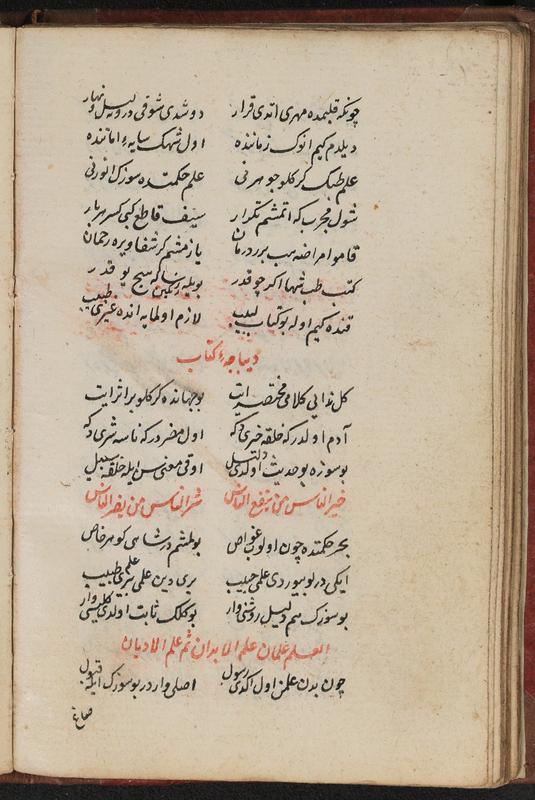 چونکه قلبمده مهری ایتدی قرار دوشدی شوقی درونه لیل و نهار
دیلدم کیم انوک زماننده اول شهک سایهٔ اماننده
علم طبک کرکلو جوهرنی علم حکمتده سوزک انورنی
شول مجرب که اتمشم تکرار سیف قاطع کبی کسر هر بار
قامو امراضه سبب برر درمان یازمشم کر شفا ویره رحمان
کتب طب شها اکر چوقدر بویله رنکین که هیچ یوقدر
قنده کیم اوله بو کتاب لبیب لازم اولمایه انده غیری طبیب
دیباجهٔ کتاب
کل ندایی کلامی مختصر ایت بو جهانده کرکلو بر اثر ایت
آدم اولدر که خلقه خیری دکه اول مضر در که ناسه شری دکه
بو سوزه بو حدیث اولدی دلیل اوقی معنی سن ایله خلقه سبیل
خیر الناس من ینفع الناس شر الناس من یضر الناس
بحر حکمتده چون اولوب غواص بولمشم در شاهی کوهر خاص
ایکی در بو بیوردی علمی حبیب بری دین علمی بری علم طبیب
بو سوزک هم دلیل روشنی وار بو کلک ثابت اولدی کلشنی وار
العلم علمان علم الابدان ثم علم الادیان
چون بدن علمن اول اکدی رسول اصلی واردر بو سوزک ایله قبول